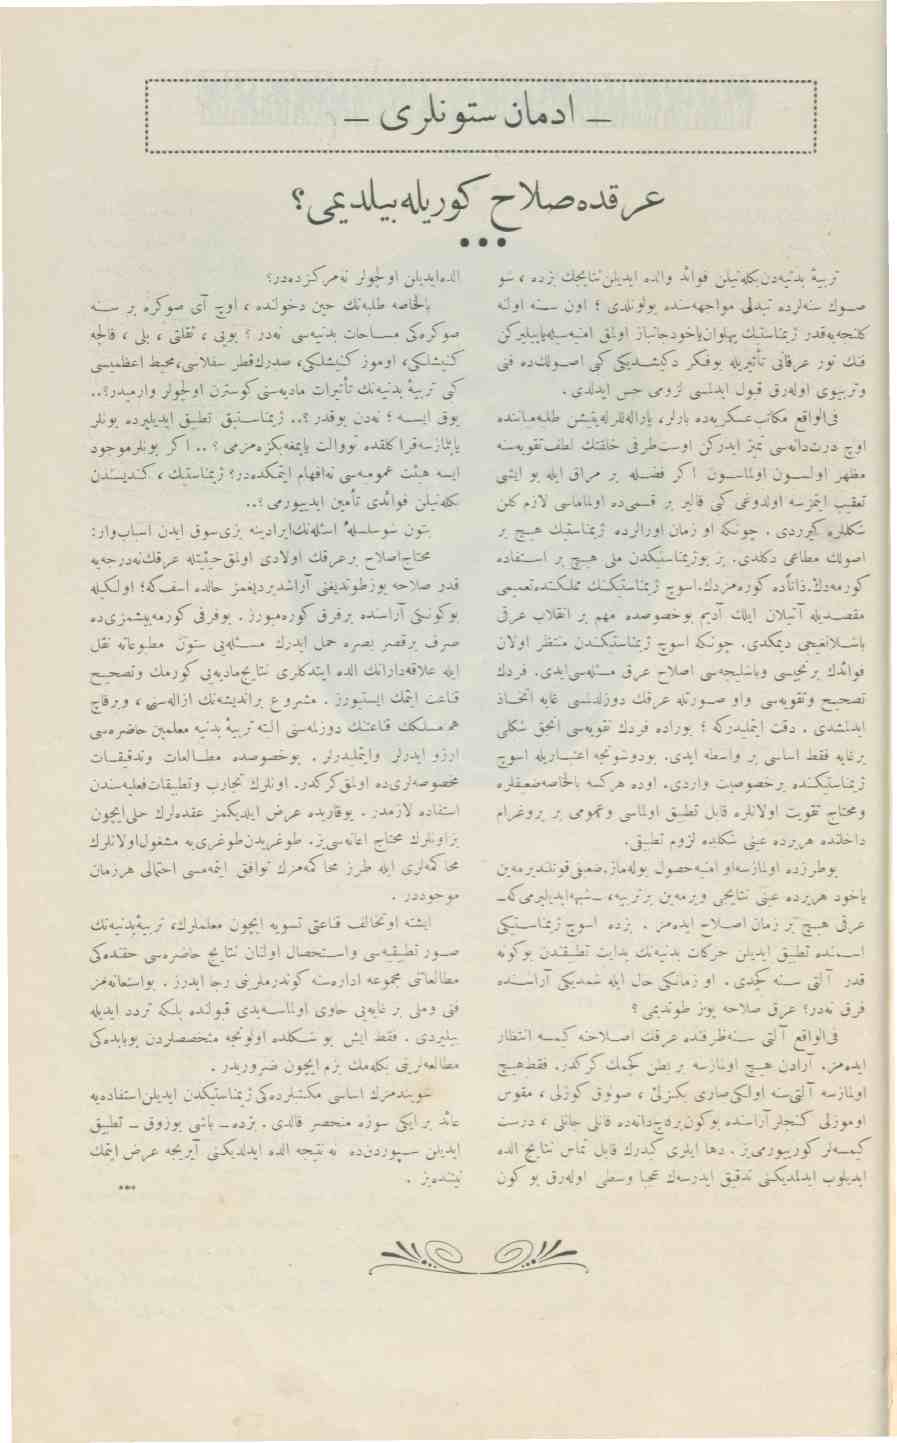 — ادمان ستونلری —
عرقده صلاح كوریله بیلدیمی؟
تربیهٔ بدنیه‌دن بكله‌نیلن فوائد والده ایدیلن نتایجك بزده ، شو
صوك سنه‌لرده تبدلی مواجهه‌سنده بولوندی ؛ اون سنه اوله
كلنجه‌یه‌قدر ژیمناستیك پهلوان یاخود جانباز اولمق
فنك نور عرفانی تأثیریله بوفكر دكیشدیكی كبی اصوللرده فنی
وتربیوی اوله‌رق قبول ایدلمسی لزومی حس ایدلدی .
فی‌الواقع مكاتب عسكریه‌ده بارلر، پارالللرله یتیشن طلبه‌مانده
اوچ درت دانه‌سی تمیز ایدركن اوست طرفی خلقتك لطف تقویه‌سنه
مظهر اولسون اولماسون اكر فضله بر مراق ایله بو ایشی
تعقیب ایتمزسه اولدوغی كبی قالیر بر قسمی‌ده اولماماسی لازم كلن
شكللره كیرردی . چونكه او زمان اورالرده ژیمناستیك هیچ بر
اصولك مطاعی دكلدی. بز بوژیمناستیكدن ملی هیچ بر استفاده
كورمه‌دك. ذاتاً ده كوره‌مزدك. اسوچ ژیمناستیكنك مملكتده تعمیمی
مقصدیله آتیلان ایلك آدیم بوخصوصده مهم بر انقلاب عرقی
باشلانغیجی دیمكدی. چونكه اسوچ ژیمناستیكندن منتظر اولان
فوائدك برنجیسی وباشلیجه‌سی اصلاح عرق مسئله‌سی ایدی. فردك
تصحیح وتقویه‌سی واو صورتله عرقك دوزلمسی غایه اتخاذ
ایدلمشدی . دقت ایتملیدركه ؛ بوراده فردك تقویه‌سی انجق شكلی
برغایه فقط اساسی بر واسطه ایدی. بودوشونجه اعتباریله اسوچ
ژیمناستیكنده برخصوصیت واردی. اوده هركسه بالخاصه ضعیفلره
ومحتاج تقویت اولانلره قابل تطبیق اولماسی وعمومی بر پروغرام
داخلنده هریرده عینی شكلده لزوم تطبیقی.
بوطرزده اولمازسه او امنیه حصول بوله‌ماز. ضعیفی قوتلندیرمه‌ین
یاخود هریرده عینی نتایجی ویرمه‌ین برتربیه، ـ شبهه ایدیلیرمی كه ـ
عرقی هیچ بر زمان اصلاح ایده‌مز . بزده اسوچ ژیمناستیكی
اسمنده تطبیق ایدیلن حركات بدنیه‌نك بدایت تطبیقندن بوكونه
قدر آلتی سنه كچدی . او زمانكی حال ایله شمدیكی آراسنده
فرق نه‌در؟ عرق صلاحه یوز طوتدیمی ؟
فی‌الواقع آلتی سنه ظرفنده عرقك اصلاحنه كیمسه انتظار
ایده‌مز. آرادن هیچ اولمازسه بر بطن كچمك كركدر. فقط هیچ
اولمازسه آلتی سنه اولكی صاری بكیزلی ، صولوق كوزلی ، مقوس
اوموزلی كنجلر آراسنده بوكون برقاچ دانه‌ده قانلی جانلی ، درست
كیمسه‌لر كورییورمی‌یز . دها ایلری كیدرك قابل تماس نتایج الده
ایدیلوب ایدلمدیكنی تدقیق ایدرسه‌ك عجبا وسطی اوله‌رق بو كون
الده ایدیلن اولچولر نه مركزده‌در؟
بالخاصه طلبه‌نك حین دخولنده ، اوچ آی صوكره بر سنه
صوكره‌كی مساحات بدنیه‌سی نه‌در ؟ بویی ، ثقلتی ، بلی ، قالچه
كنیشلكی، اوموز كنیشلكی، صدرك قطر سفلاسی، محیط اعظمیسی
كبی تربیهٔ بدنیه‌نك تأثیرات مادیه‌سنی كوسترن اولچولر وارمیدر؟..
یوق ایسه ؛ نه‌دن یوقدر ؟.. ژیمناستیق تطبیق ایدیلیرده بونلر
یاپیلمازسه قراكلقده تووالت یاپیلمغه بكزه‌مزمی ؟ .. اكر بونلر موجود
ایسه هیئت عمومیه‌سی نه افهام ایتمكده‌در؟ ژیمناستیك ، كندیسندن
بكله‌نیلن فوائدی تأمین ایدییورمی ؟..
بتون شو سلسلهٔ اسئله‌نك ایرادینه بزی سوق ایدن اسباب وار:
محتاج اصلاح برعرقك اولادی اولمق حیثیتله عرقك نه درجه‌یه
قدر صلاحه یوزطوتدیغنی آراشدیردیغمز حالده اسف كه؛ اولكیله
بوكونكی آراسنده برفرق كوره‌میورز . بوفرقی كورمه‌ییشمزی‌ده
صرف برقصر بصره حمل ایدرك مسئله‌یی ستون مطبوعاته نقل
ایله علاقه‌دارانك الده ایتدكلری نتایج مادیه‌یی كورمك وتصحیح
قناعت ایتمك ایستیورز . مشروع براندیشه‌نك ازاله‌سنی ، وبرقاچ
هم مسلكك قناعتك دوزلمه‌سنی البته تربیهٔ بدنیه معلمین حاضره‌سی
ارزو ایدرلر وایتملیدرلر . بوخصوصده مطالعات وتدقیقات
مخصوصه‌لری‌ده اولمق كركدر. اونلرك تجارب وتطبیقات فعلیه‌سندن
استفاده لازمدر . یوقاریده عرض ایلدیكمز عقده‌لرك حلی ایچون
بزاونلرك محتاج اعانه‌سی‌یز. طوغریدن طوغری‌یه مشغول اولانلرك
محاكمه‌لری ایله طرز محاكمه‌مزك توافق ایتمه‌مسی احتمالی هر زمان
موجوددر .
ایشته او تخالف قناعتی تسویه ایچون معلملرك، تربیهٔ بدنیه‌نك
صور تطبیقیه‌سی واستحصال اولنان نتایج حاضره‌سی حقنده‌كی
مطالعاتنی مجموعه اداره‌سنه كوندرملرینی رجا ایدرز . بواستعانه‌مز
فنی وملی بر غایه‌یی حاوی اولماسه‌یدی قبولنده بلكه تردد ایدیله
بیلیردی . فقط ایش بو شكلده اولونجه متخصصلردن بوبابده‌كی
مطالعه‌لرینی بكله‌مك بزم ایچون ضروریدر .
شویندمزك اساسی مكتبلرده‌كی ژیمناستیكدن ایدیلن استفاده‌یه
عائد بر ایكی سوزه منحصر قالدی . بزده ـ باشی بوزوق ـ تطبیق
ایدیلن سپوردن‌ده نه نتیجه الده ایدلدیكنی آیریجه عرض ایتمك
نیتنده‌یز .
***